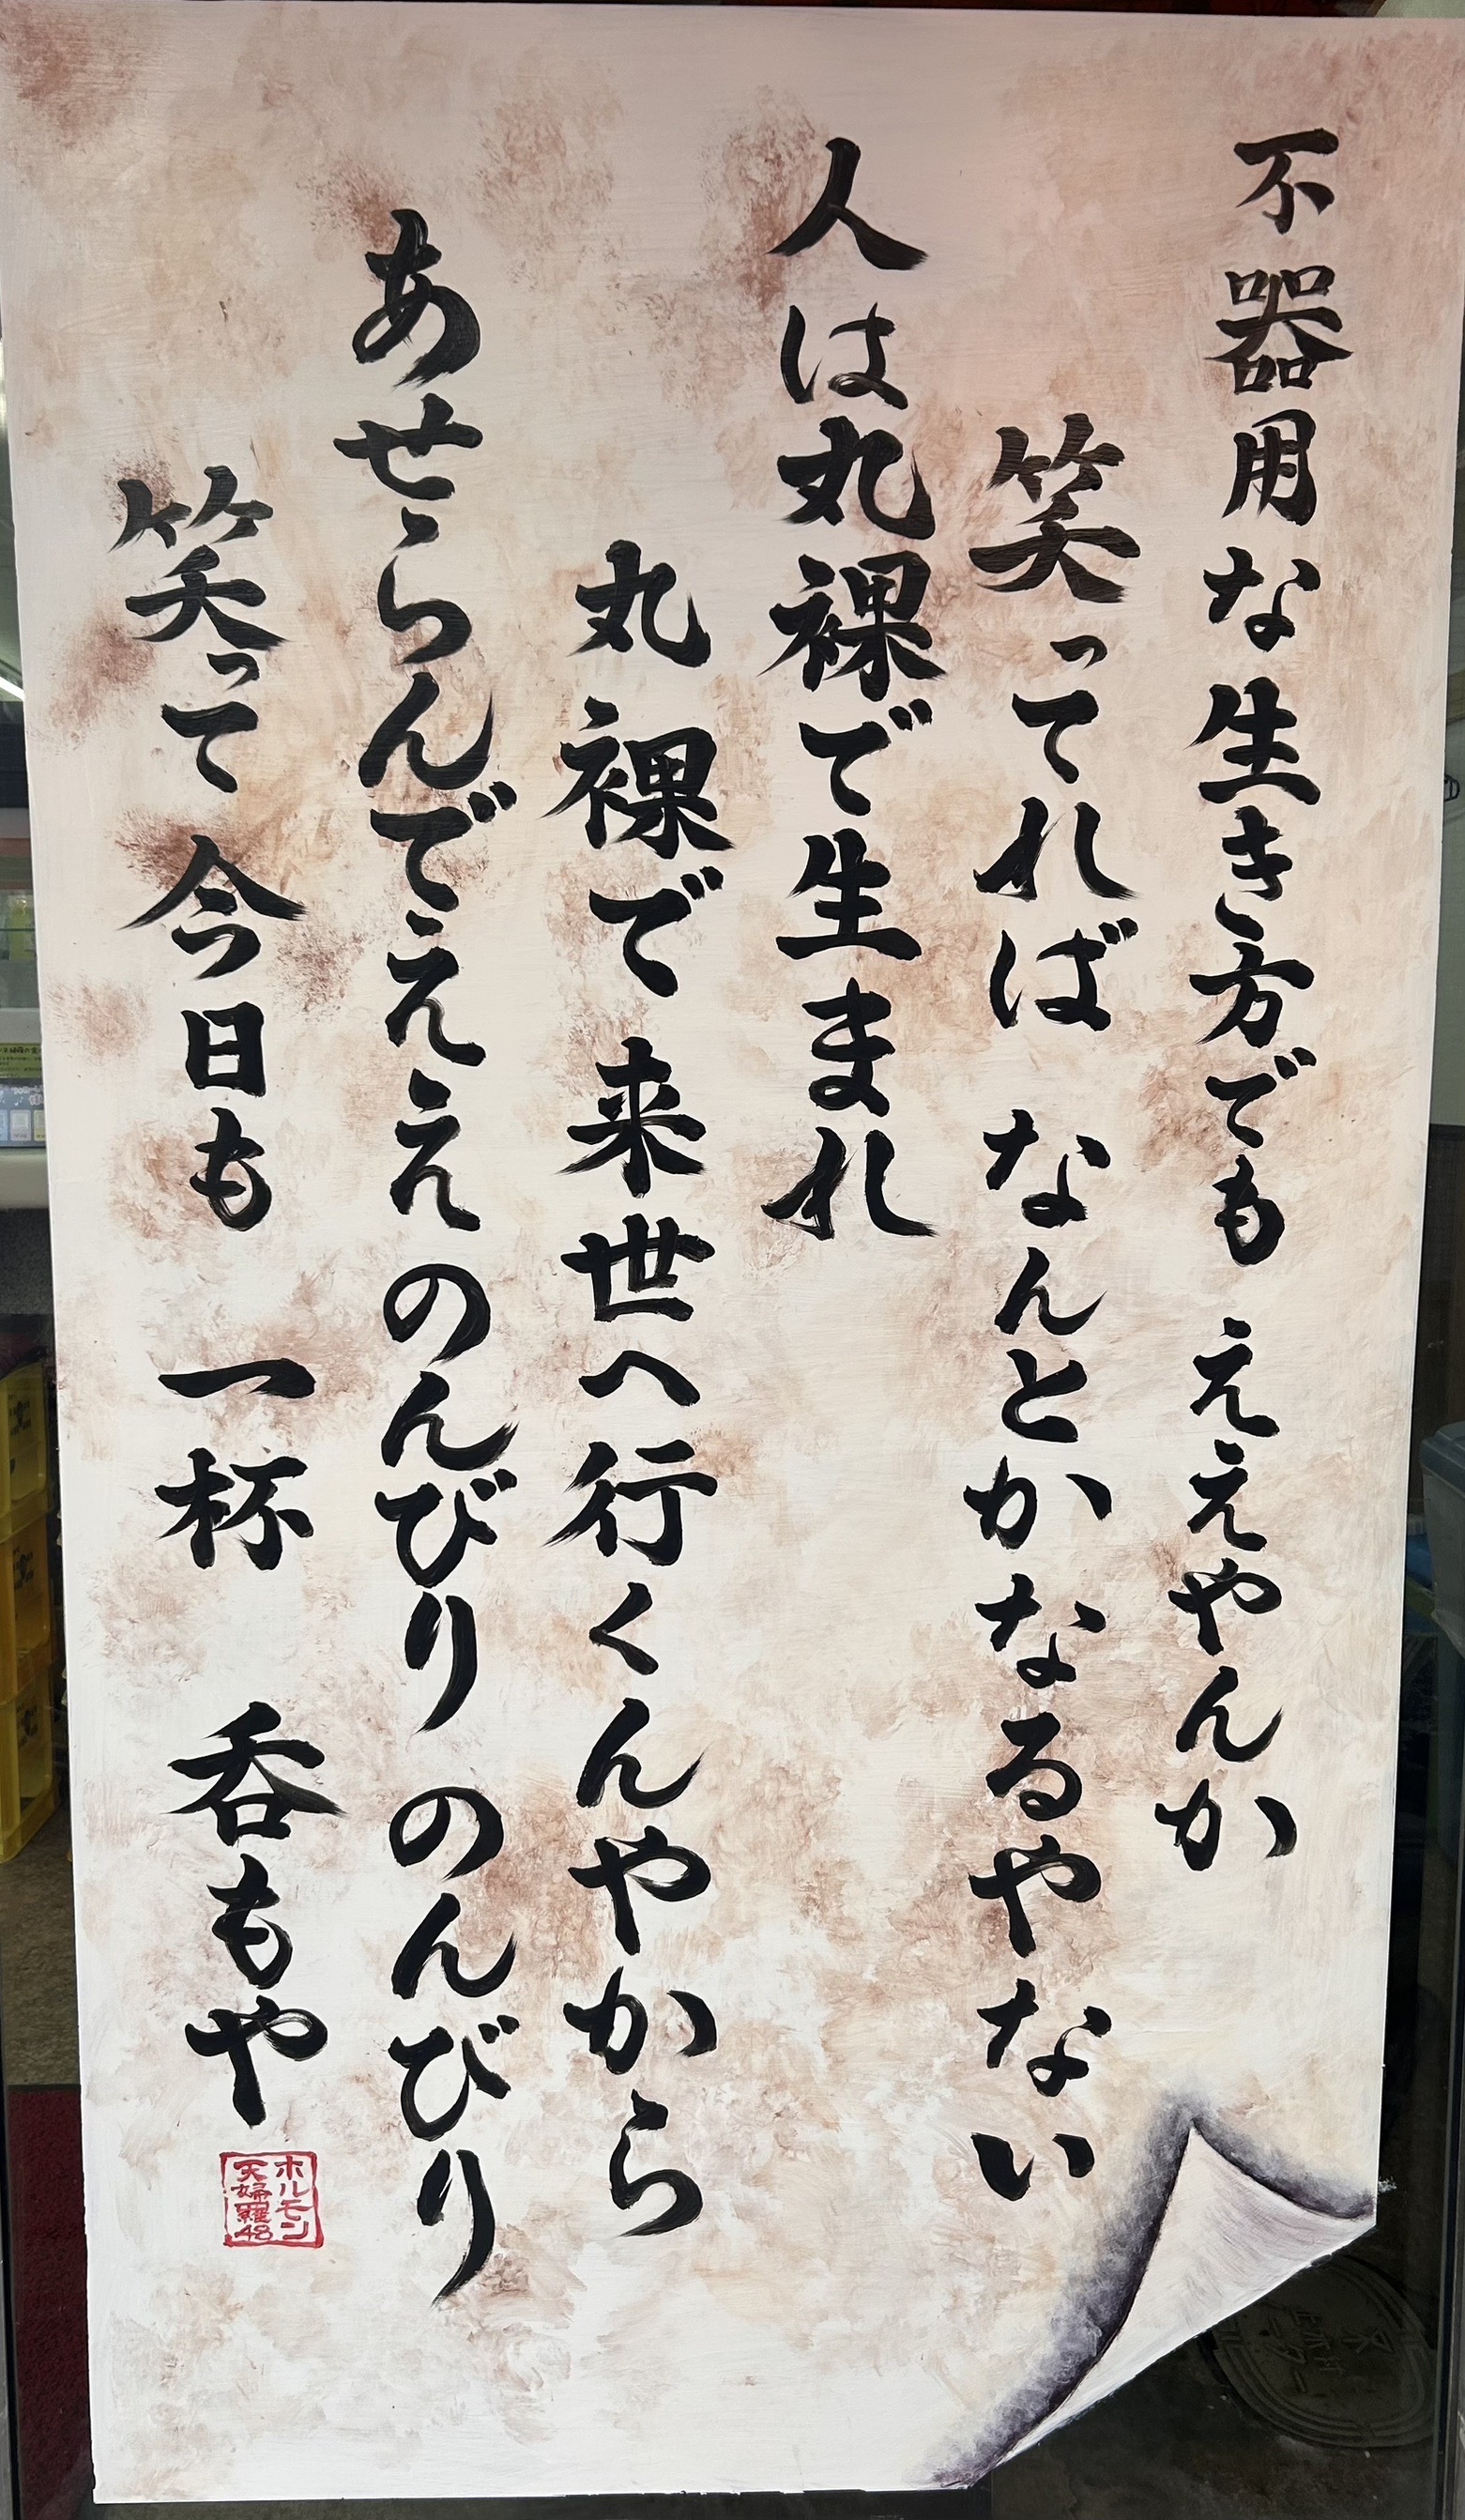 不器用な生き方でも ええやんか
笑ってれば なんとかなるやない
人は丸裸で生まれ
丸裸で来世へ行くんやから
あせらんでええ のんびり のんびり
笑って今日も 一杯 呑もや
ホルモン
天婦羅48